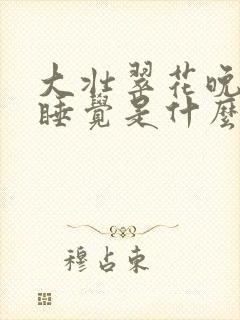 大壯翠花晚
睡覺是什麼
穆占東